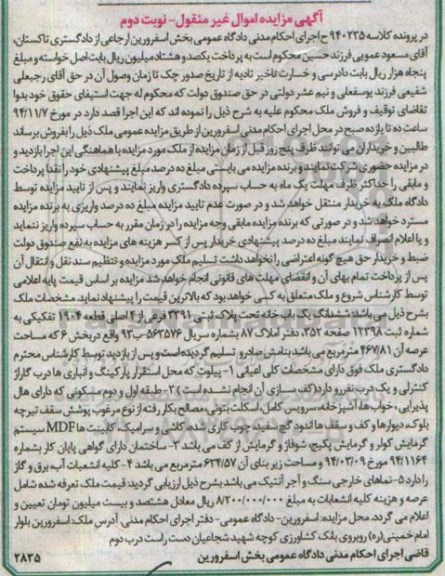 آگهی مزایده اموال غیر منقول- نوبت دوم
در پرونده کلاسه ۹۴۰۲۲۵ ح اجرای احکام مدنی دادگاه عمومی بخش اسفرورین ارجاعی از دادگستری تاکستان،
آقای مسعود عمویی فرزند حسین محکوم است به پرداخت یکصد و هشتاد میلیون ریال بابت اصل خواسته و مبلغ
پنجاه هزار ریال بابت دادرسی و خسارت تاخیر تادیه از تاریخ صدور چک تا زمان وصول آن در حق آقای رجبعلی
شفیعی فرزند یوسفعلی و نیم عشر دولتی در حق صندوق دولت که محکوم له جهت استیفای حقوق خود بدوا
تقاضای توقیف و فروش ملک محکوم علیه به شرح ذیل را نموده اند که این اجرا قصد دارد در مورخ ۹۴/۱۱/۷
ساعت ده تا یازده صبح در محل اجرای احکام مدنی اسفرورین از طریق مزایده عمومی ملک ذیل را بفروش برساند
طالبین و خریداران می توانند ظرف پنج روز قبل از زمان مزایده از ملک مورد مزایده با هماهنگی این اجرا بازدید و
در مزایده حضوری شرکت نمایند و برنده مزایده می بایستی مبلغ ده درصد مبلغ پیشنهادی خود را نقدا پرداخت
و مابقی را حداکثر ظرف مهلت یک ماه به حساب سپرده دادگستری واریز نمایند و پس از تایید مزایده توسط
دادگاه ملک به خریدار منتقل خواهد شد و در صورت عدم تایید مزایده مبلغ ده درصد واریزی به برنده مزایده
مسترد خواهد شد و در صورتی که برنده مزایده مابقی وجه مزایده را در زمان مقرر به حساب سپرده واریز ننماید
و یا اعلام انصراف نمایند مبلغ ده درصد پیشنهادی خریدار پس از کسر هزینه های مزایده به نفع صندوق دولت
ضبط و خریدار حق هیچ گونه اعتراضی را نخواهد داشت تسلیم ملک مورد مزایده و تنظیم سند نقل و انتقال آن
پس از پرداخت تمام بهای آن و انقضای مهلت های قانونی انجام خواهد شد مزایده بر اساس قیمت پایه اعلامی
توسط کارشناس شروع و ملک متعلق به کسی خواهد بود که بالاترین قیمت را پیشنهاد نماید مشخصات ملک
بشرح ذیل می باشد: ششدانگ یک باب خانه تحت پلاک ثبتی ۳۳۹۱ فرعی از ۴ اصلی قطعه ۱۹۰۴ تفکیکی به
شماره ثبت ۱۲۳۹۸ صفحه ۳۵۲، دفتر املاک ۸۷ بشماره سریال ۵۶۳۵۷۶-ب۹۳ واقع در بخش ۶ که مساحت
عرصه آن ۴۶۷/۸۱ مترمربع می باشد بنامش صادر و تسلیم گردیده است و پس از بازدید توسط کارشناس محترم
دادگستری ملک فوق دارای مشخصات کلی اعیانی ۱- پیلوت که محل استقرار پارکینگ و انباری ها درب کاراژ
کنترلی و یک درب نفررو دارد(کف سازی آن انجام نشده است) ۲- طبقه اول و دوم مسکونی که دارای هال
پذیرایی، خواب ها، آشپزخانه، سرویس کامل، اسکلت بتونی، مصالح بکار رفته از نوع مرغوب پوشش سقف تیرچه
بلوک، دیوارها و کف و سقف ها اندود گچ سفید، چوب کاری شده، کاشی و سرامیک، کابینت ها MDF سیستم
گرمایش کولر و گرمایش پکیج، شوفاژ و گرمایش از کف می باشد ۳- ساختمان دارای گواهی پایان کار بشماره
۹۴/۱۱۶۴ مورخ ۹۴/۰۳/۰۹ و مساحت زیر بنای آن ۶۳۴/۵۷ مترمربع می باشد ۴- کلیه انشعبات آب، برق و گاز
را دارد ۵- نماهای خارجی سنگ و آجر آنتیک می باشد بشرح ذیل ارزیابی گردید: قیمت ملک تعرفه شده شامل
عرصه و هزینه کلیه انشعابات به مبلغ ۸/۲۰۰/۰۰۰/۰۰۰ ریال معادل هشتصد و بیست میلیون تومان تعیین و
اعلام می گردد. محل مزایده: اسفرورین- دادگاه عمومی- دفتر اجرای احکام مدنی آدرس ملک: اسفرورین بلوار
امام خمینی(ره) روبروی بانک کشاورزی کوچه شهید شجاعیان دست راست درب دوم
قاضی اجرای احکام مدنی دادگاه عمومی بخش اسفرورین
۲۸۳۵